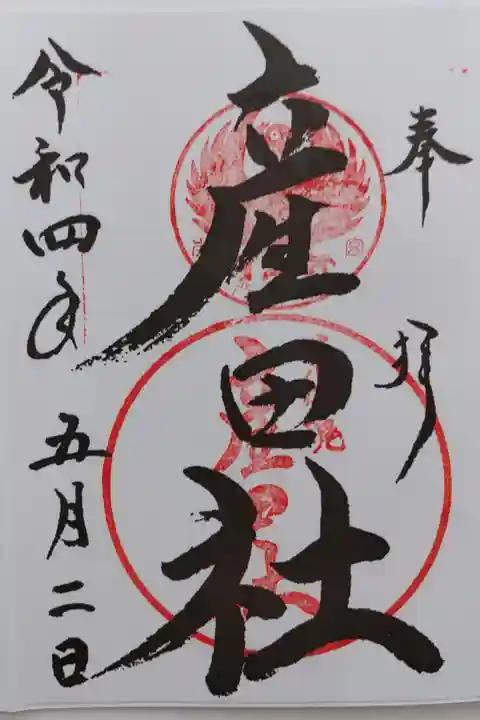 奉拝
産田社
令和四年五月二日